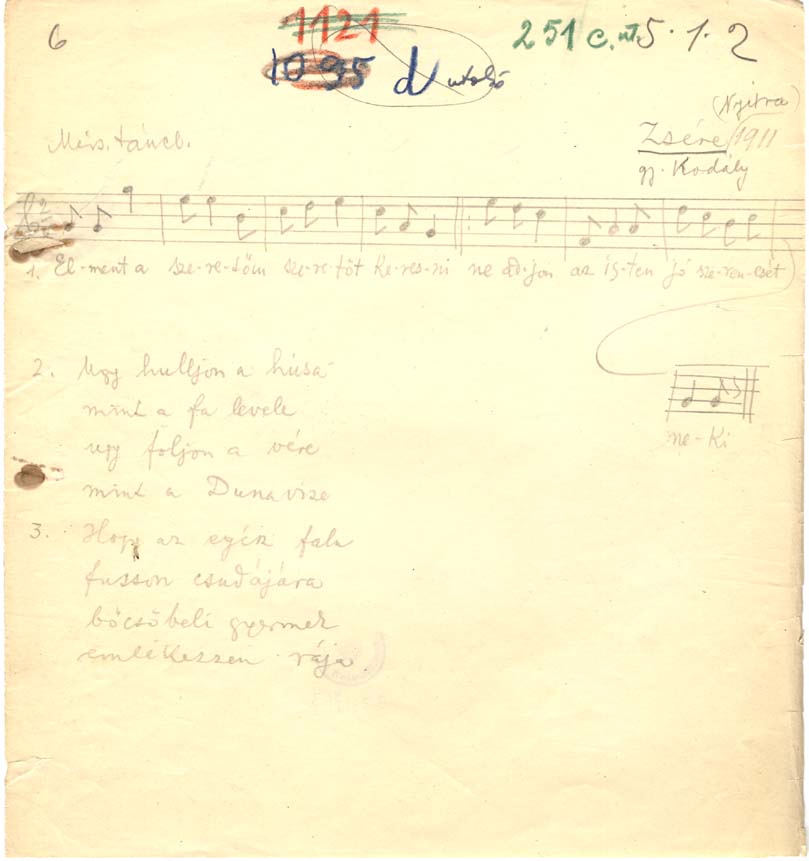 6
1121
1095 d utolsó
251 c. ut. 5·1·2
(Nyitra)
Zsére/1911
gy. Kodály
Mérs. táncl.
1. El-ment a sze-re-tőm sze-re-tőt ke-res-ni ne ad-jon az is-ten jó sze-ren-csét
ne-ki
2. Ugy hulljon a húsa
mint a fa levele
ugy foljon a vére
mint a Dunavize
3. Hogy az egész falu
fusson csudájára
bőcsőbeli gyermek
emlékezzen rája